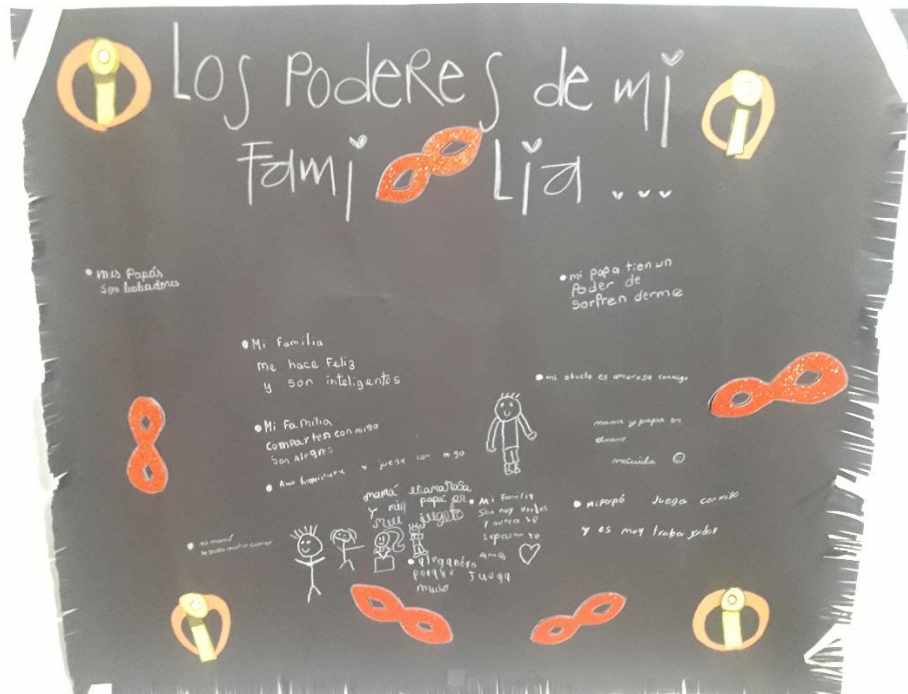 Los Poderes de mi
Fami Lia ...
• mis Papás
son trabadores
• mi papa tien un
Poder de
sorpren derme
• Mi Familia
me hace Feliz
y son inteligentes
• mi abuela es amorosa conmigo
• Mi Familia
comparten con migo
son alegres
mama y papa
me cuida
y juega con migo
mamá
papá es
• Mi Familia
son muy unidos
y nunca se
separan
• mi papá Juega conmigo
y es muy traba jador
• mi mamá
porque Juega